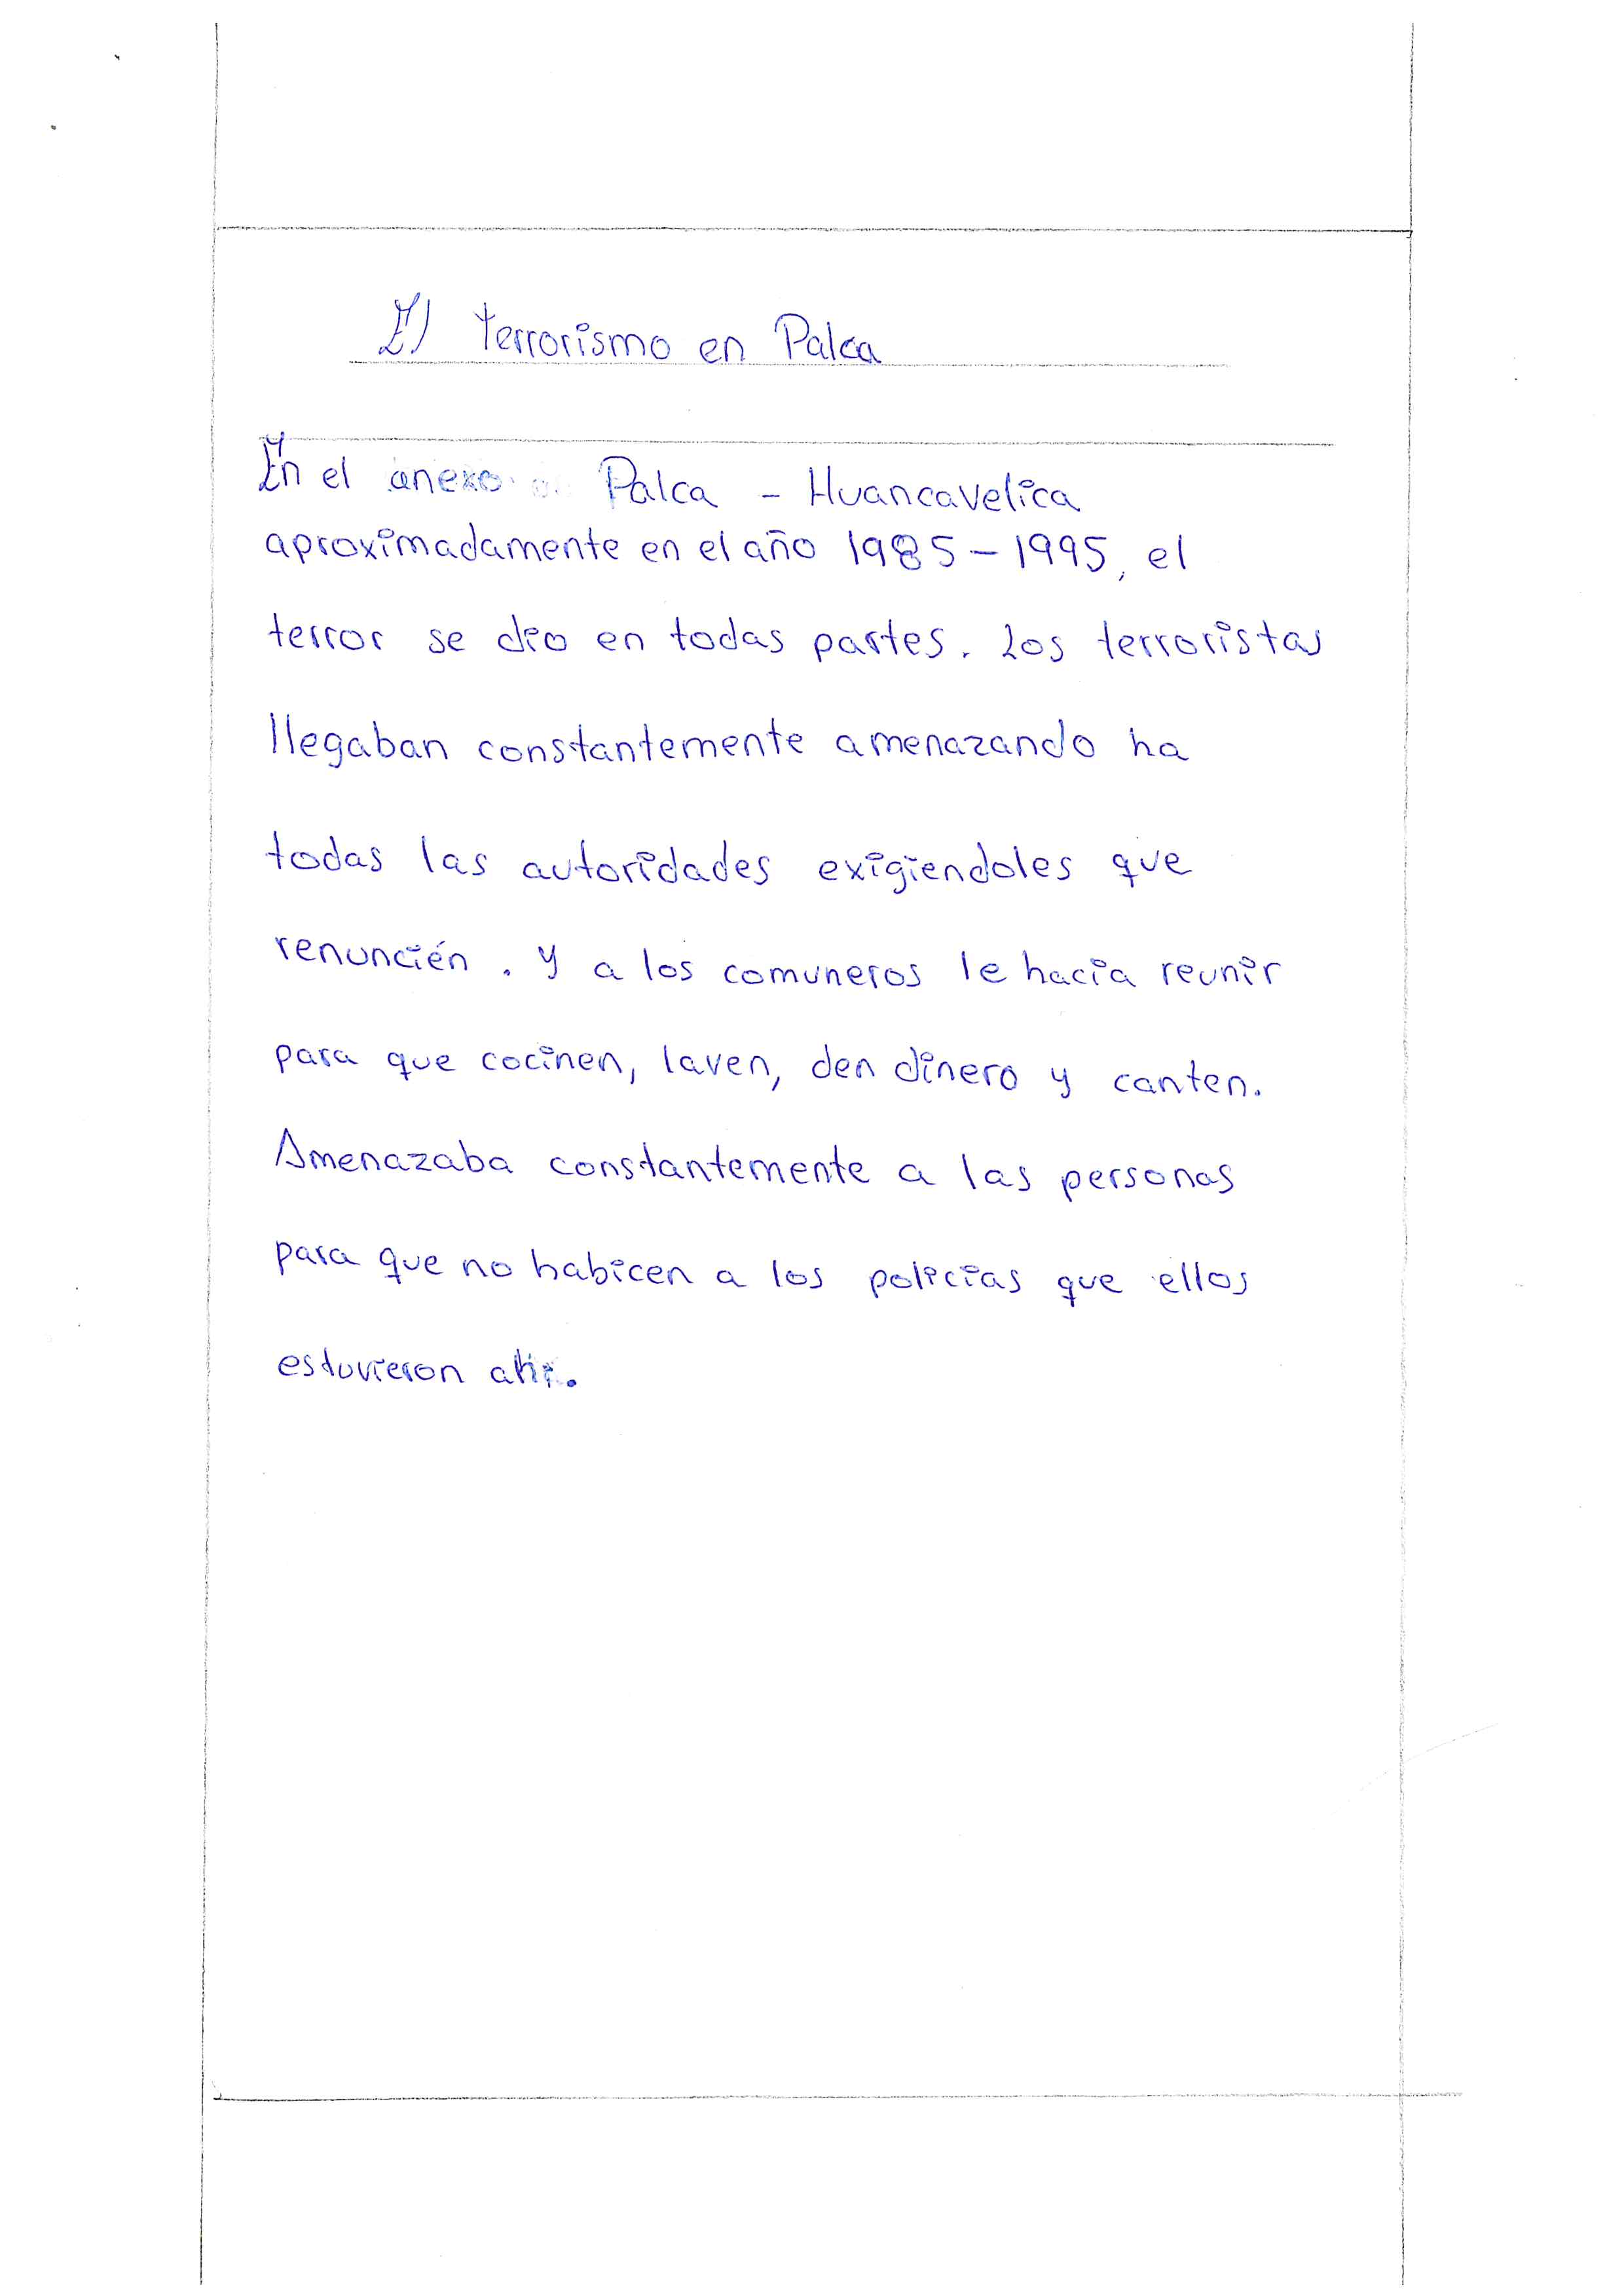 El terrorismo en Palca
En el anexo Palca - Huancavelica
aproximadamente en el año 1985-1995, el
terror se dio en todas partes. Los terroristas
llegaban constantemente amenazando ha
todas las autoridades exigiendoles que
renuncién. Y a los comuneros le hacia reunir
para que cocinen, laven, den dinero y canten.
Amenazaba constantemente a las personas
para que no habicen a los policias que ellos
estuvieron ahi.